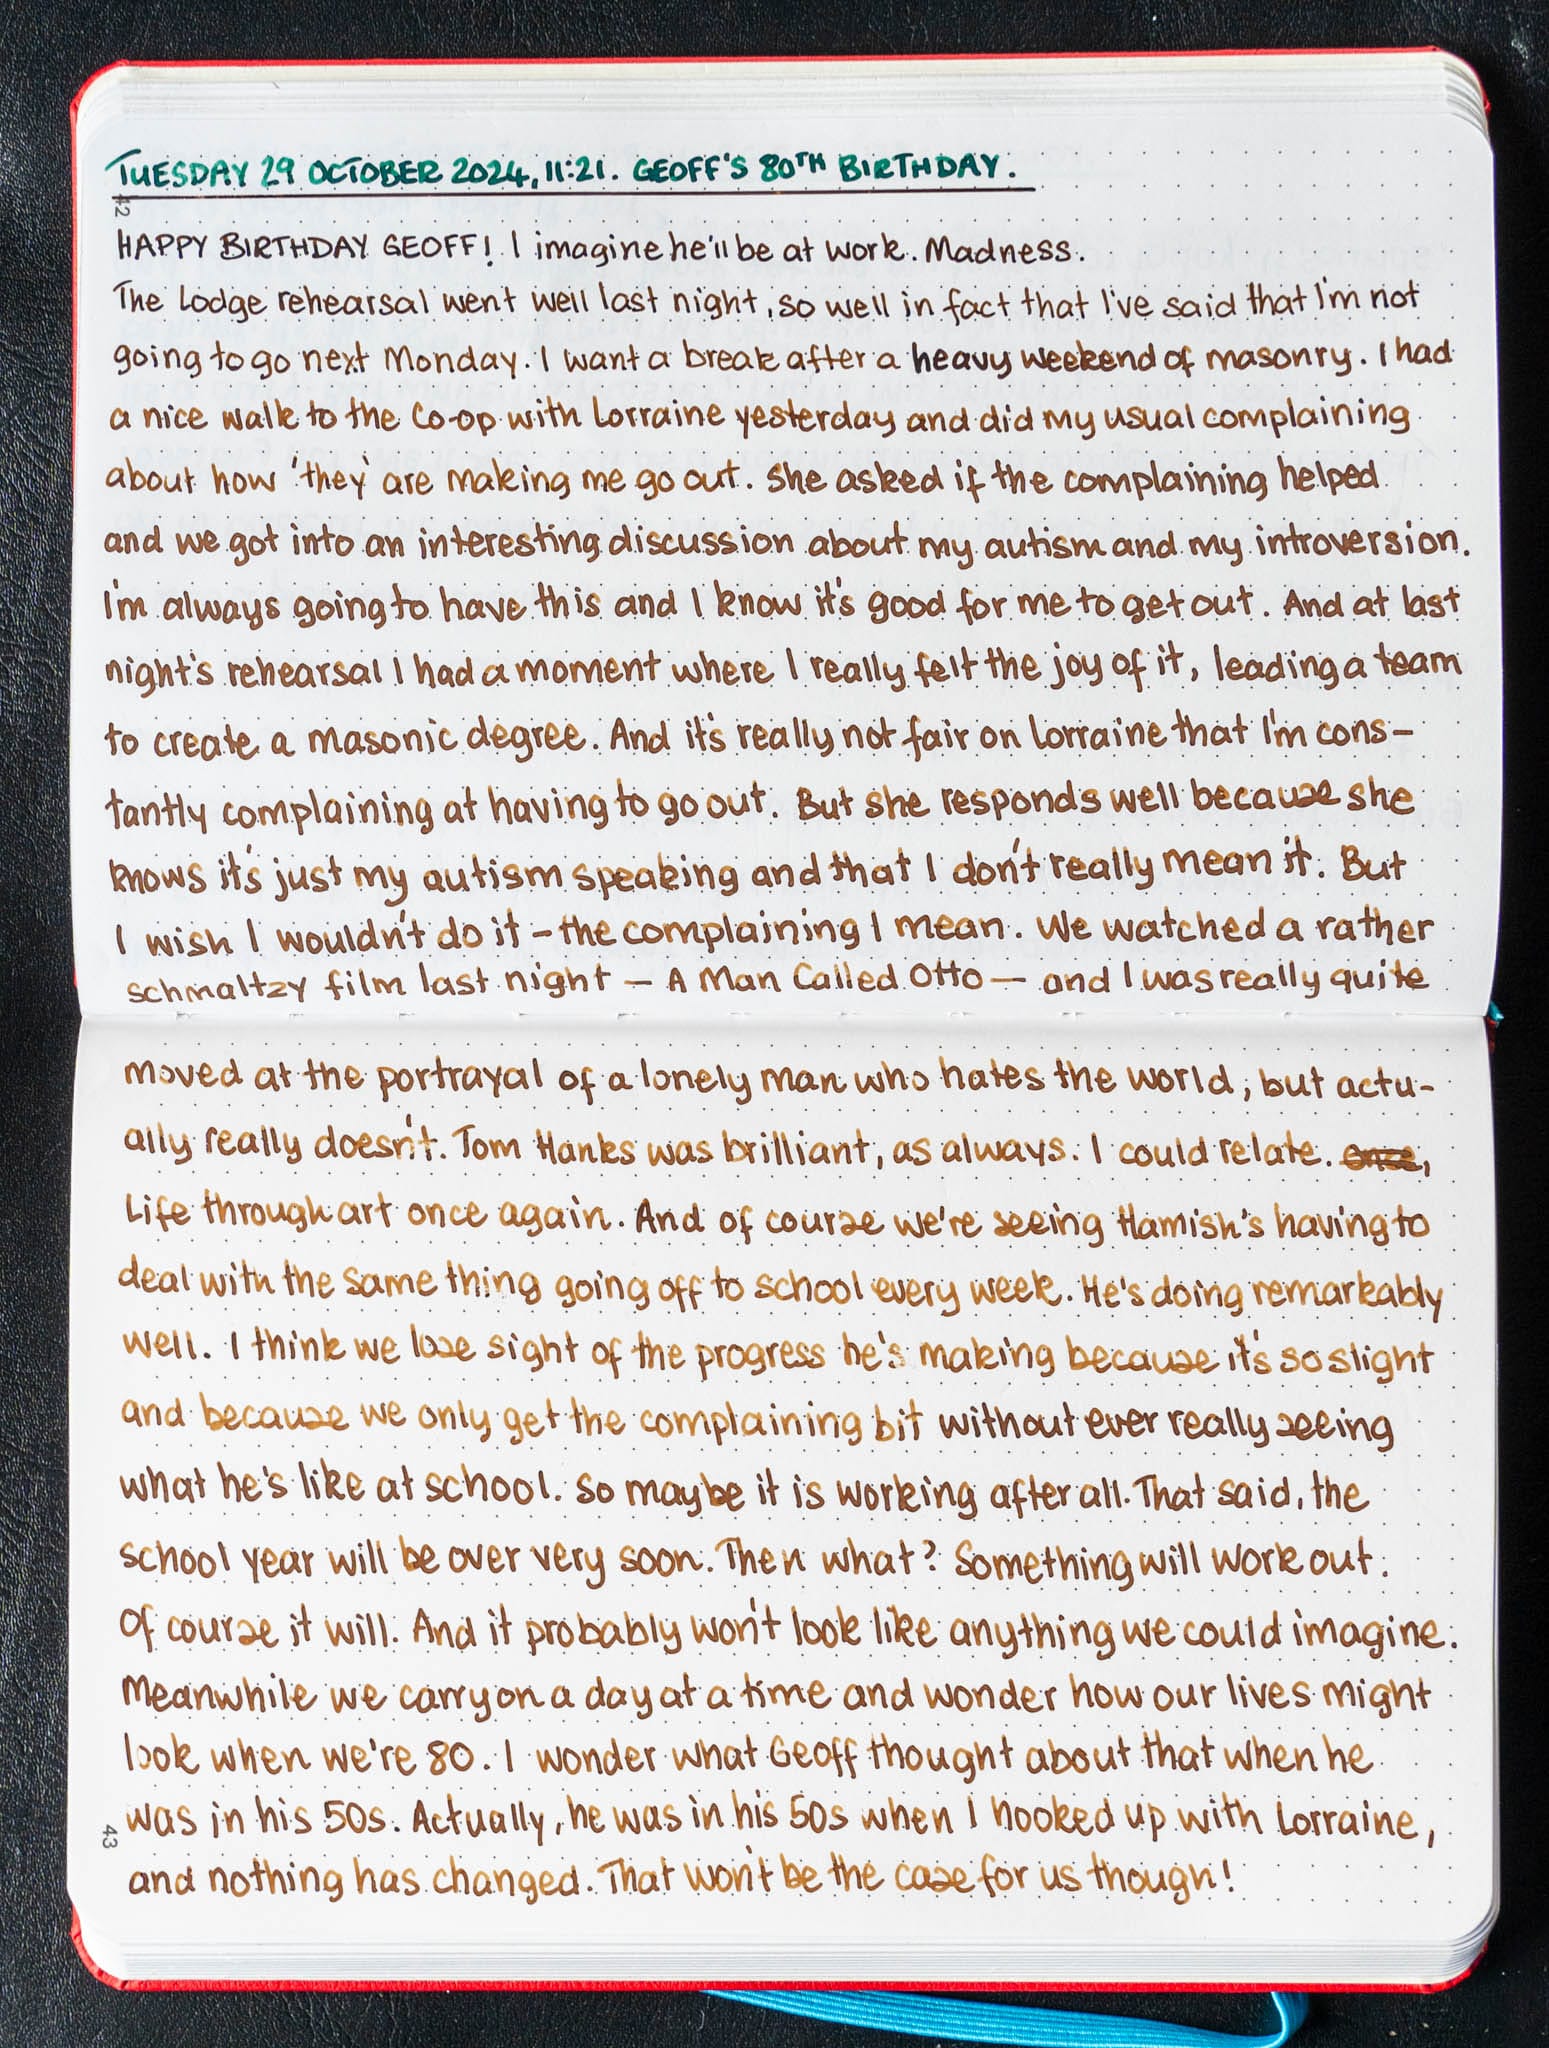 TUESDAY 29 OCTOBER 2024, 11:21. GEOFF'S 80TH BIRTHDAY.
42
HAPPY BIRTHDAY GEOFF! I imagine he'll be at work. Madness.
The Lodge rehearsal went well last night, so well in fact that I've said that I'm not
going to go next Monday. I want a break after a heavy weekend of masonry. I had
a nice walk to the Co-op with Lorraine yesterday and did my usual complaining
about how 'they' are making me go out. She asked if the complaining helped
and we got into an interesting discussion about my autism and my introversion.
I'm always going to have this and I know it's good for me to get out. And at last
night's rehearsal I had a moment where I really felt the joy of it, leading a team
to create a masonic degree. And it's really not fair on Lorraine that I'm cons-
tantly complaining at having to go out. But she responds well because she
knows it's just my autism speaking and that I don't really mean it. But
I wish I wouldn't do it - the complaining I mean. We watched a rather
schmaltzy film last night — A Man Called Otto — and I was really quite
moved at the portrayal of a lonely man who hates the world, but actu-
ally really doesn't. Tom Hanks was brilliant, as always. I could relate. once,
Life through art once again. And of course we're seeing Hamish's having to
deal with the same thing going off to school every week. He's doing remarkably
well. I think we lose sight of the progress he's making because it's so slight
and because we only get the complaining bit without ever really seeing
what he's like at school. So maybe it is working after all. That said, the
school year will be over very soon. Then what? Something will work out.
Of course it will. And it probably won't look like anything we could imagine.
Meanwhile we carry on a day at a time and wonder how our lives might
look when we're 80. I wonder what Geoff thought about that when he
was in his 50s. Actually, he was in his 50s when I hooked up with Lorraine,
43
and nothing has changed. That won't be the case for us though!